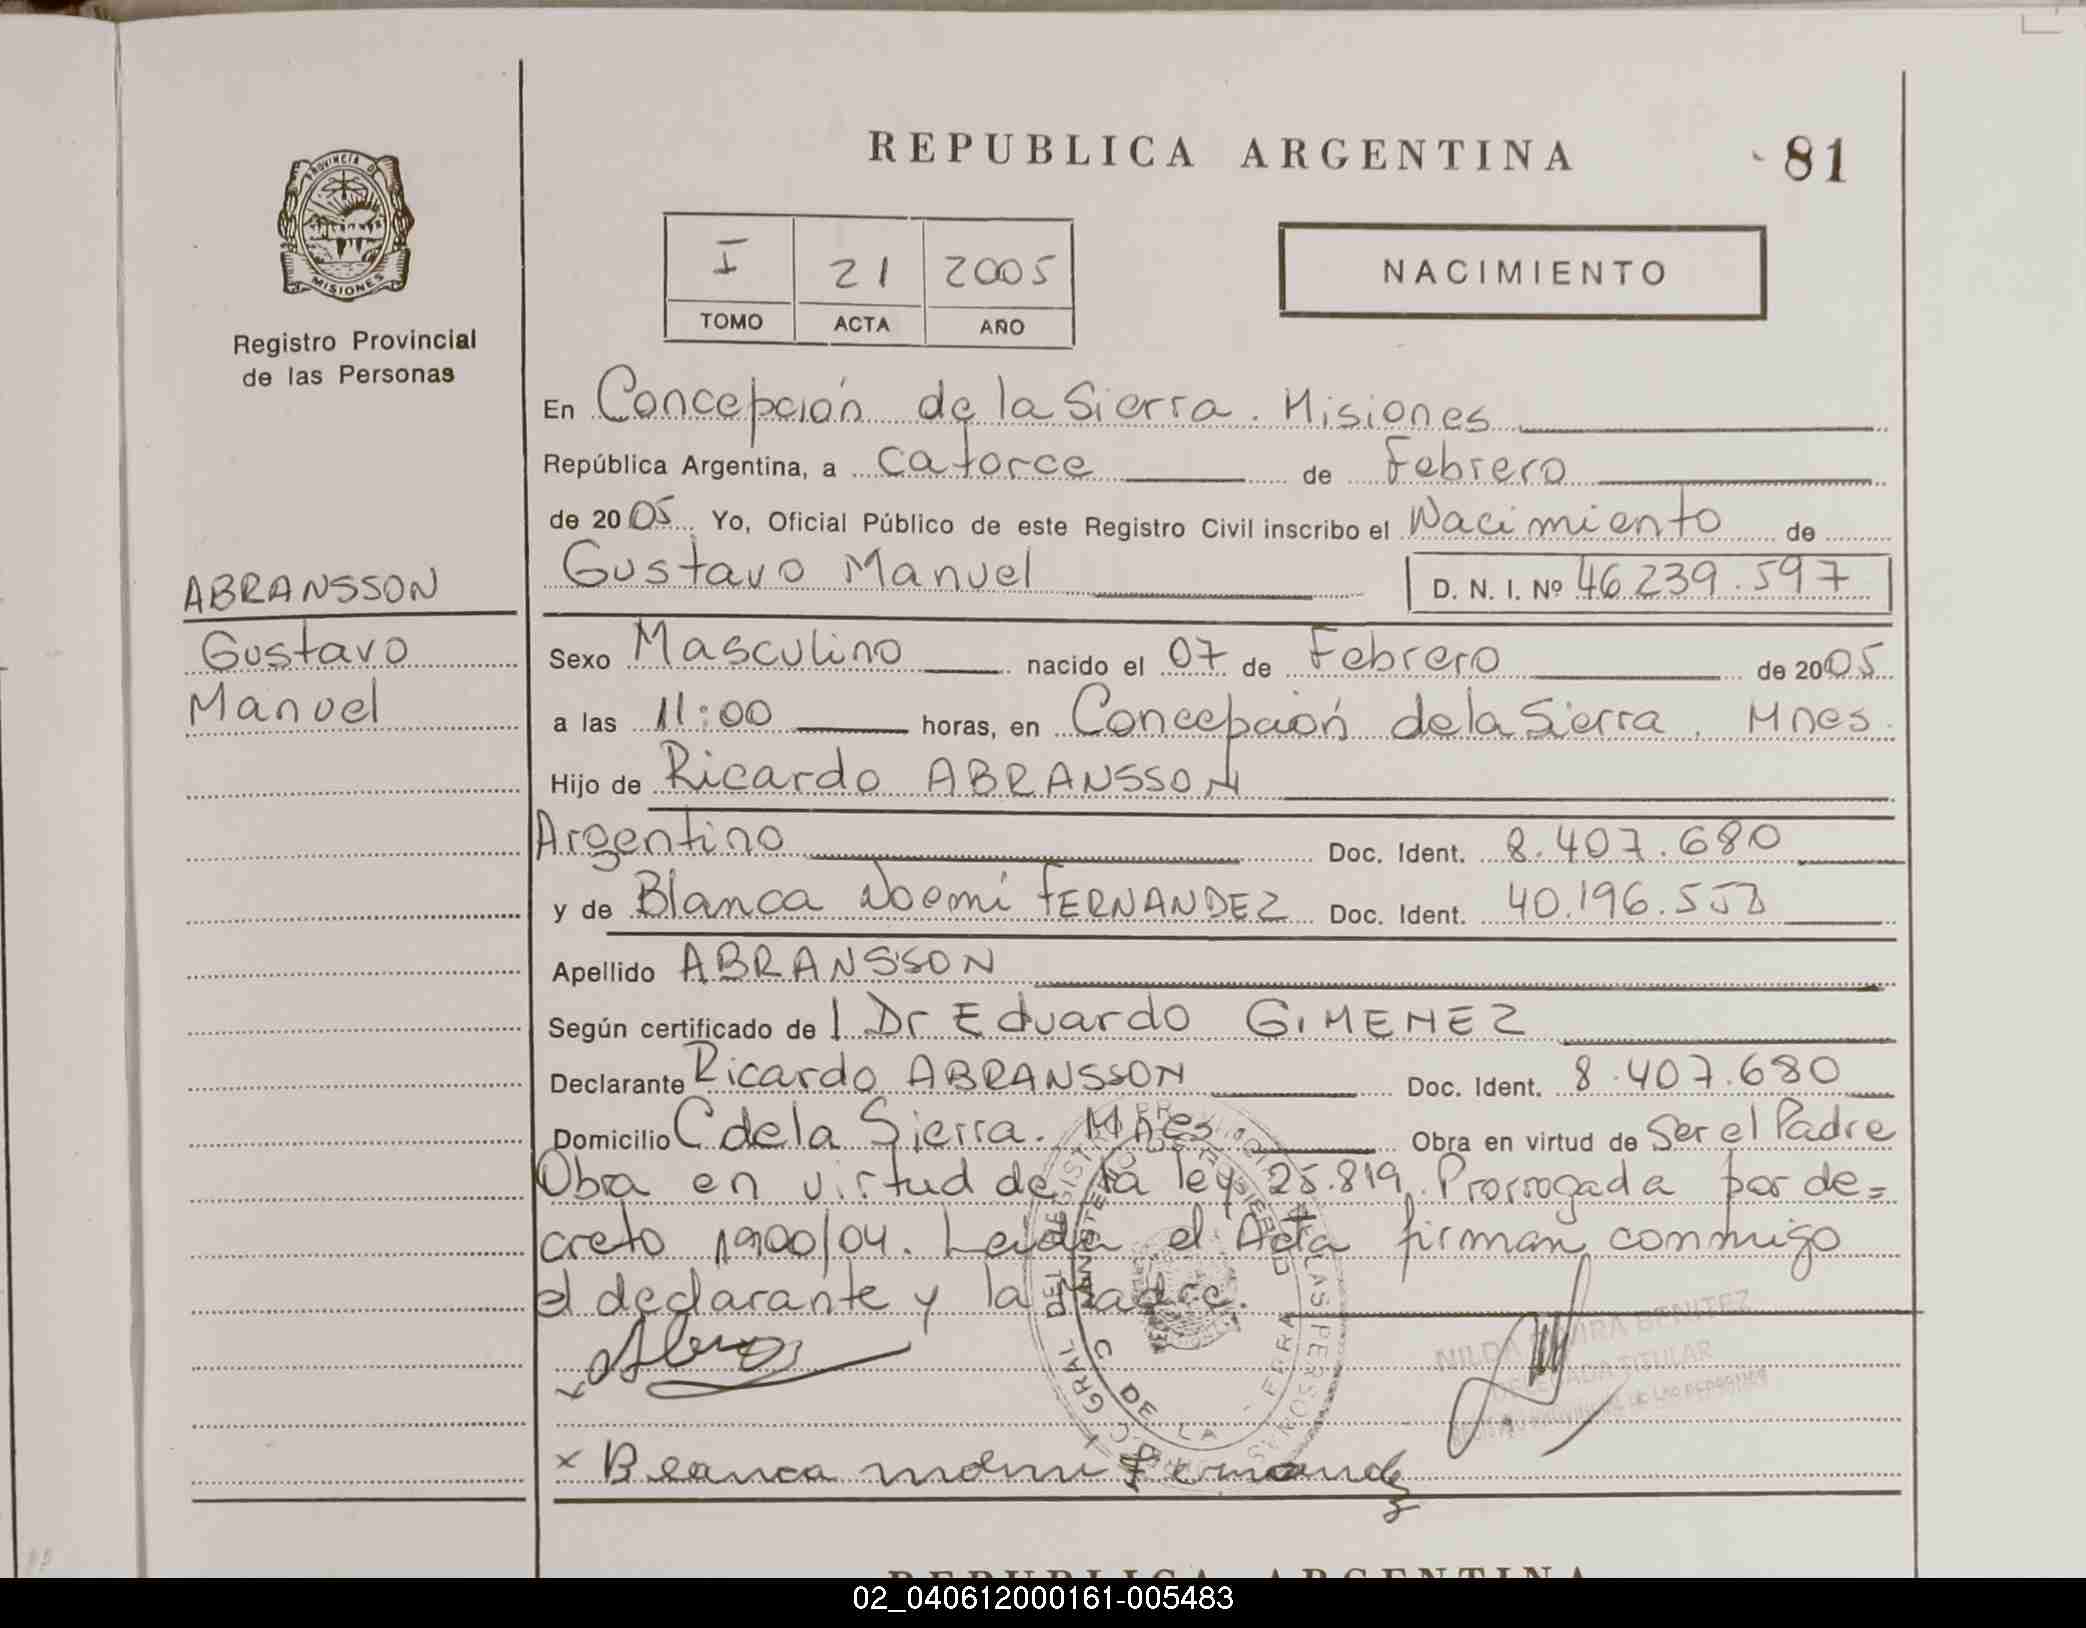 REPUBLICA ARGENTINA
81
PROVINCIA DE
MISIONES
Registro Provincial
de las Personas
I 21 2005
TOMO ACTA AÑO
NACIMIENTO
En Concepción de la Sierra. Misiones
República Argentina, a catorce de Febrero
de 2005 Yo, Oficial Público de este Registro Civil inscribo el Nacimiento de
Gustavo Manuel D. N. I. Nº 46.239.597
ABRANSSON
Gustavo
Manuel
Sexo Masculino nacido el 07 de Febrero de 2005
a las 11:00 horas, en Concepción de la Sierra. Mnes.
Hijo de Ricardo ABRANSSON
Argentino Doc. Ident. 8.407.680
y de Blanca Noemí FERNANDEZ Doc. Ident. 40.196.
Apellido ABRANSSON
Según certificado de Dr Eduardo GIMENEZ
Declarante Ricardo ABRANSSON Doc. Ident. 8.407.680
Domicilio C de la Sierra. Mnes Obra en virtud de Ser el Padre
Obra en virtud de la ley 25.819. Prorrogada por de=
creto 1900/04. Leida el Acta firman conmigo
el declarante y la Madre.
NILDA BENITEZ
DELEGADA TITULAR
x Blanca Fernandez
REPUBLICA ARGENTINA
02_040612000161-005483